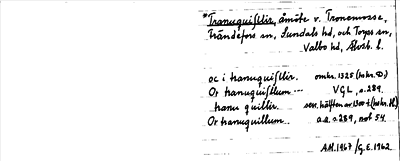 *Tranuquistlir, åmöte v. Tronemosse,
Frändefors sn, Sundals hd, och Torps sn,
Valbo hd, Älvsb. l.
oc i hanuquistlir. omkr. 1325 (hskr. D)
Or hanuquistlum --- VGL, s. 289.
hanu quillir. sen. hälften av 1300-t (hskr. H)
Or hanuquillum.. a.a. s. 289, not 54.
A.M. 1967 / G.E. 1962